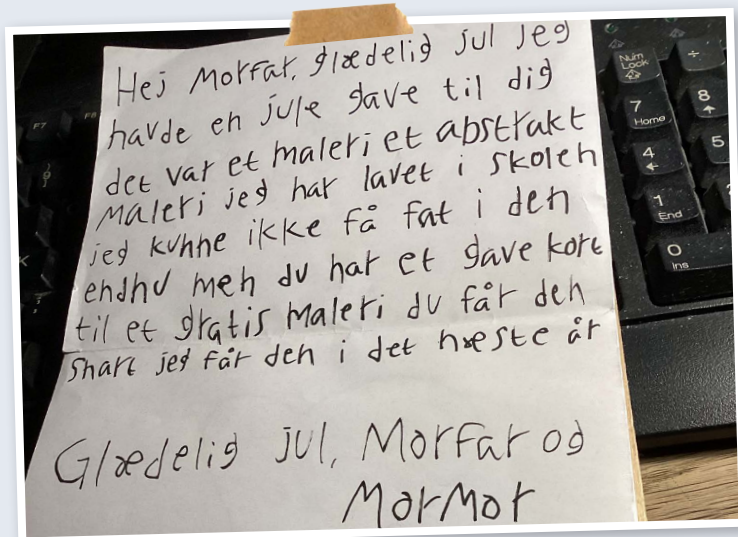 Hej Morfar, glædelig jul jeg
havde en jule gave til dig
det var et maleri et abstrakt
maleri jeg har lavet i skolen
jeg kunne ikke få fat i den
endnu men du har et gave kort
til et gratis maleri du får den
snart jeg får den i det næste år
Glædelig jul, Morfar og
Mormor
F7
F8
Num
Lock
÷
7
Home
8
4
5
1
End
0
Ins